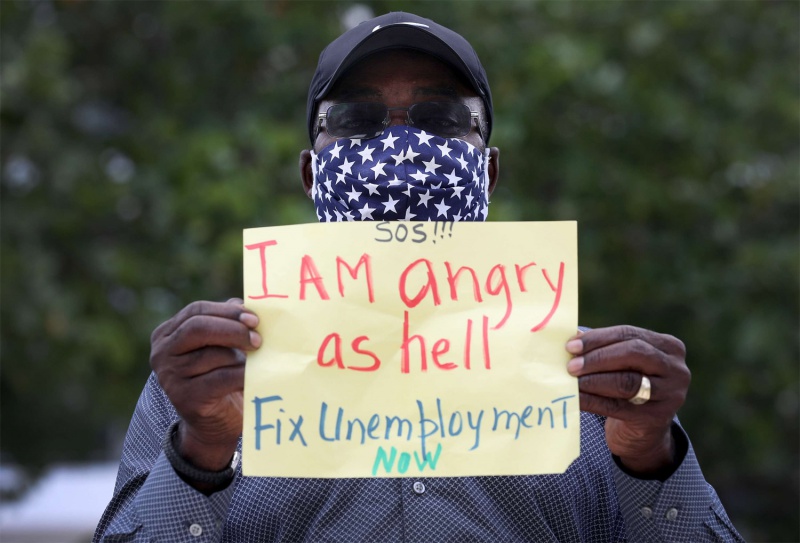 SOS!!!
I AM angry
as hell
Fix Unemployment
NOW